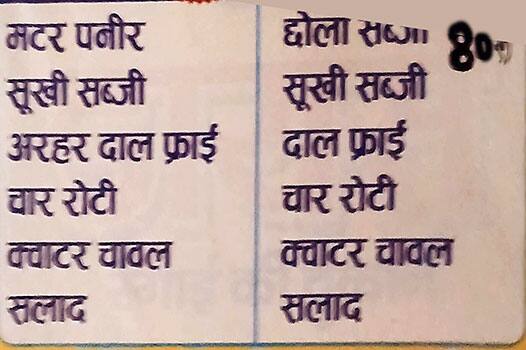 मटर पनीर
सूखी सब्जी
अरहर दाल फ्राई
चार रोटी
क्वाटर चावल
सलाद
छोला सब्जी 80
सूखी सब्जी
दाल फ्राई
चार रोटी
क्वाटर चावल
सलाद